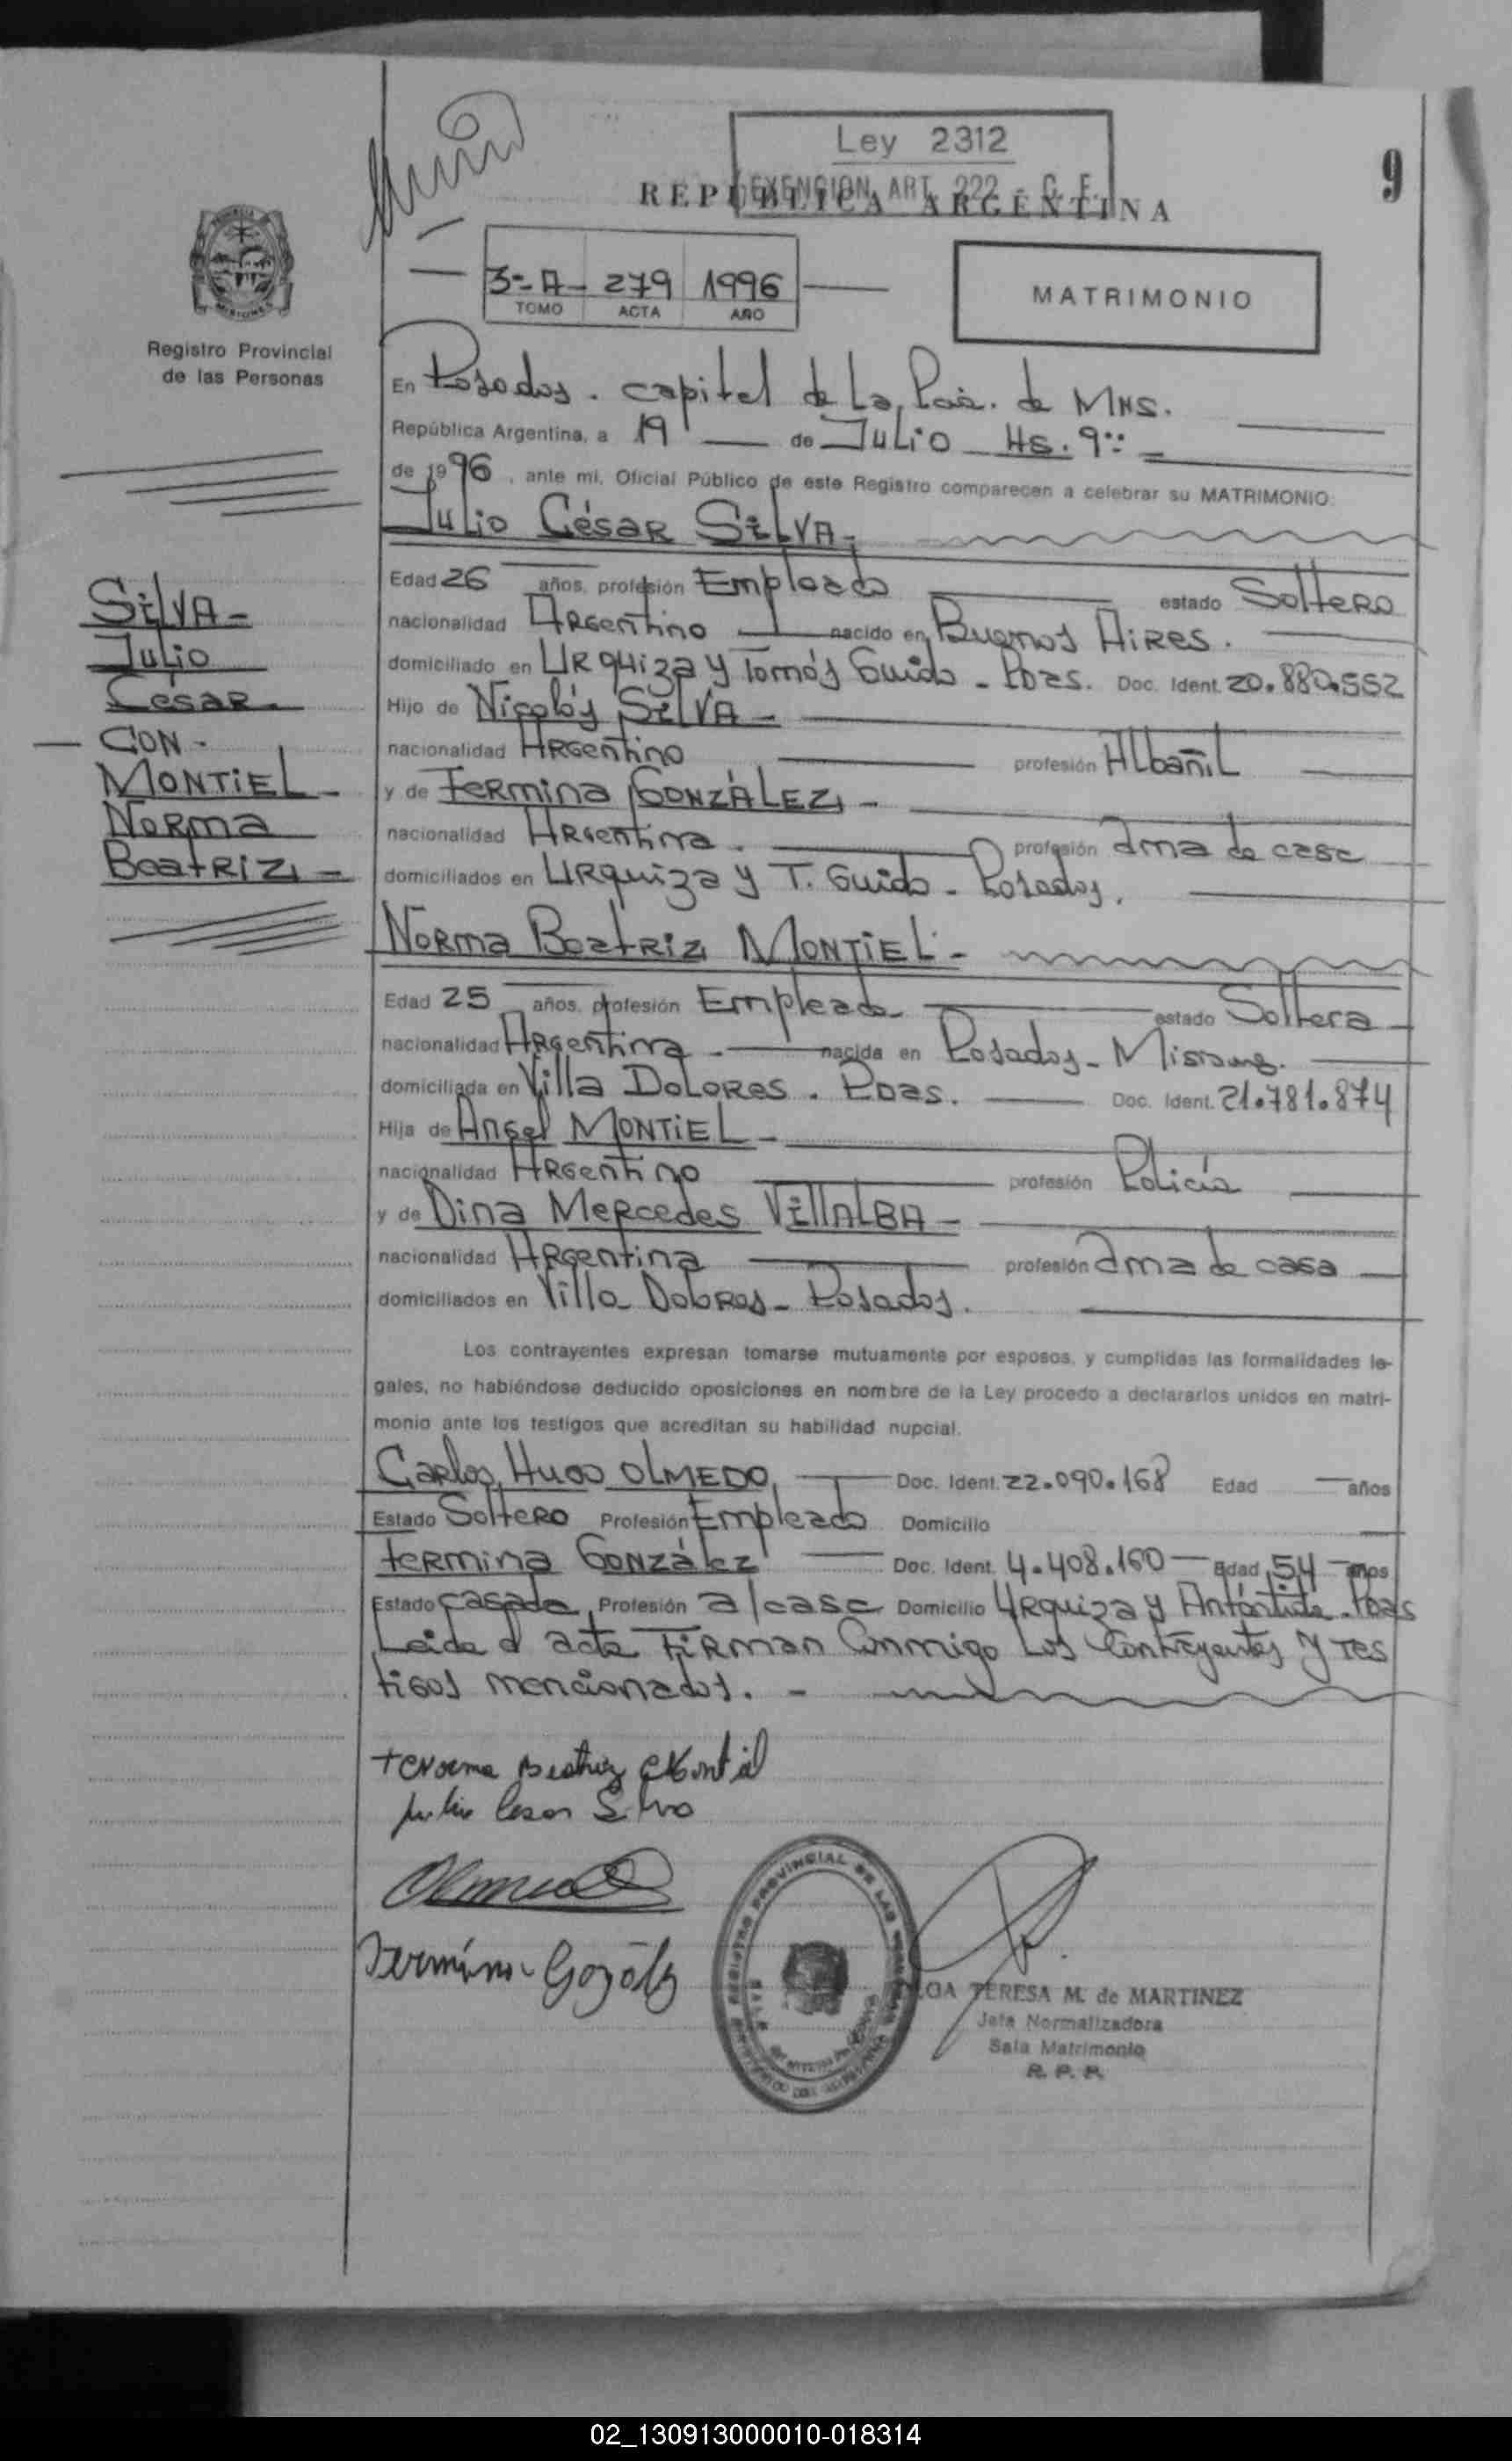 Ley 2312
EXENCION ART. 222 - C. F.
REPUBLICA ARGENTINA
9
3º- A- 279 1996
TOMO ACTA AÑO
MATRIMONIO
Registro Provincial
de las Personas
En Posadas. capital de La Pcia. de MNS.
República Argentina, a 19 de JULIO Hs. 9::
de 1996, ante mi, Oficial Público de este Registro comparecen a celebrar su MATRIMONIO:
Julio César SILVA-
Edad 26 años, profesión Empleado estado Soltero
nacionalidad Argentino nacido en Buenos Aires.
domiciliado en Urquiza y Tomás Guido - Pdas. Doc. Ident. 20.880.552
Hijo de Nicolás SILVA-
nacionalidad Argentino profesión Albañil
y de Fermina GONZÁLEZ-
nacionalidad Argentina. profesión ama de casa
domiciliados en Urquiza y T. Guido - Posadas.
SILVA-
Julio
César-
CON-
MONTIEL-
Norma
Beatriz-
Norma Beatriz MONTIEL-
Edad 25 años, profesión Empleada estado Soltera
nacionalidad Argentina - nacida en Posadas - Misiones.
domiciliada en Villa Dolores. Pdas. Doc. Ident. 21.781.874
Hija de Angel MONTIEL-
nacionalidad Argentino profesión Policía
y de Dina Mercedes VILLALBA-
nacionalidad Argentina profesión ama de casa
domiciliados en Villa Dolores - Posadas.
Los contrayentes expresan tomarse mutuamente por esposos, y cumplidas las formalidades le-
gales, no habiéndose deducido oposiciones en nombre de la Ley procedo a declararlos unidos en matri-
monio ante los testigos que acreditan su habilidad nupcial.
Carlos Hugo OLMEDO, Doc. Ident. 22.090.168 Edad años
Estado Soltero Profesión Empleado Domicilio
Fermina González Doc. Ident. 4.408.160 Edad 54 años
Estado casada Profesión a/casa Domicilio Urquiza y Antártida. Pdas
Leida el acta Firman Conmigo Los Contrayentes y Tes
tigos mencionados. -
Norma Beatriz Montiel
Julio Cesar Silva
Olmedo
Termina Gozólez
REGISTRO PROVINCIAL DE LAS PERSONAS
TERESA M. de MARTINEZ
Jefa Normalizadora
Sala Matrimonio
R. P. P.
02_130913000010-018314